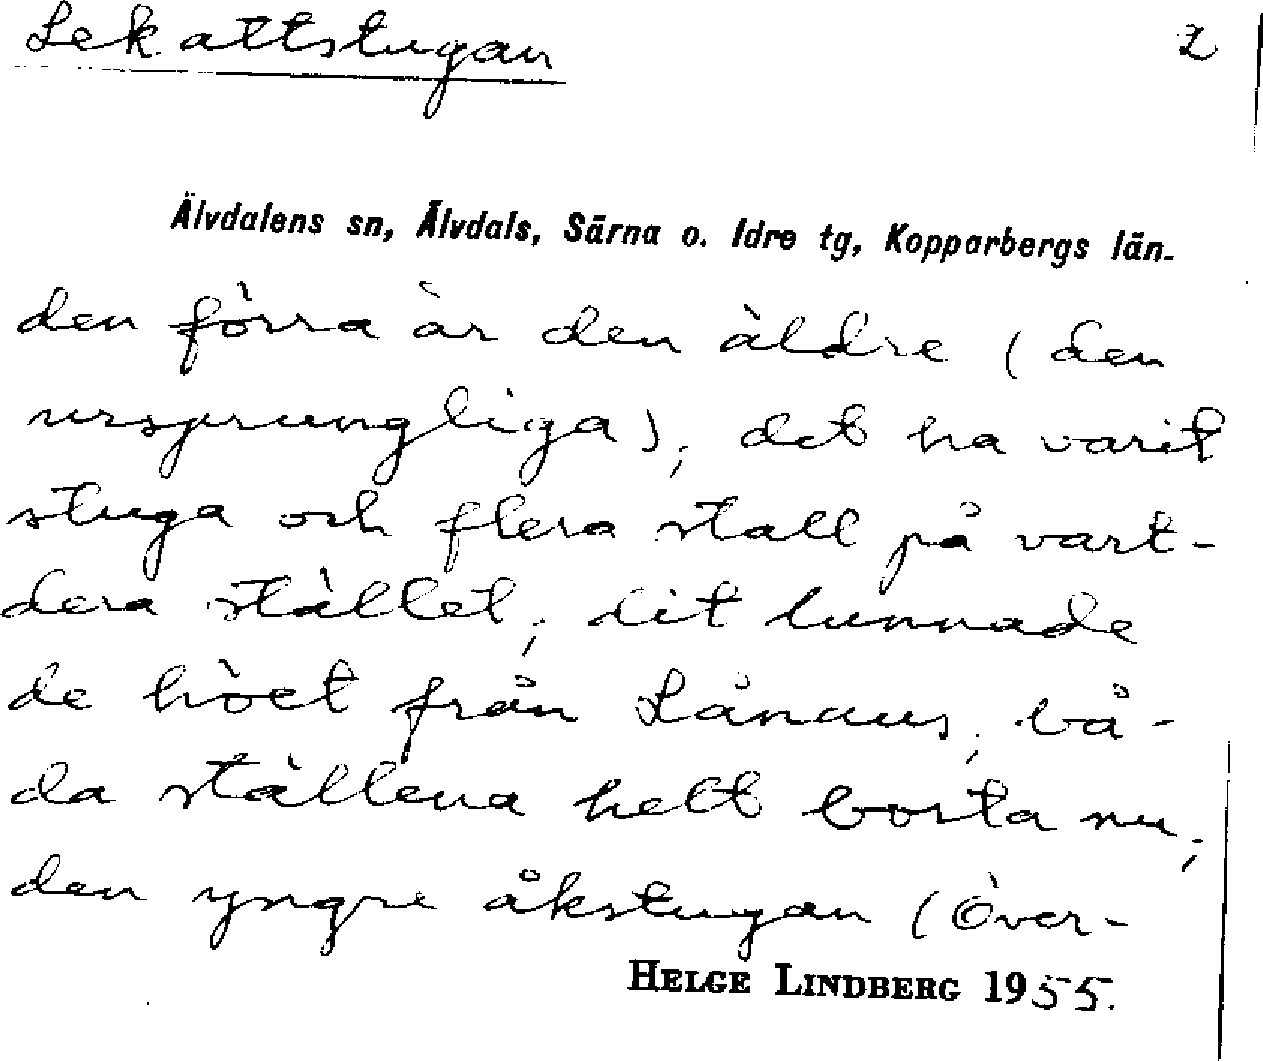 Lekattstugan 2
Älvdalens sn, Älvdals, Särna o. Idre tg, Kopparbergs län.
den förra är den äldre (den
ursprungliga); det ha varit
stuga och flera stall på vart-
dera stället; dit lunnade
de höet från Lånaus; bå-
da ställena helt borta nu;
den yngre åkstugan (Över-
HELGE LINDBERG 1955.